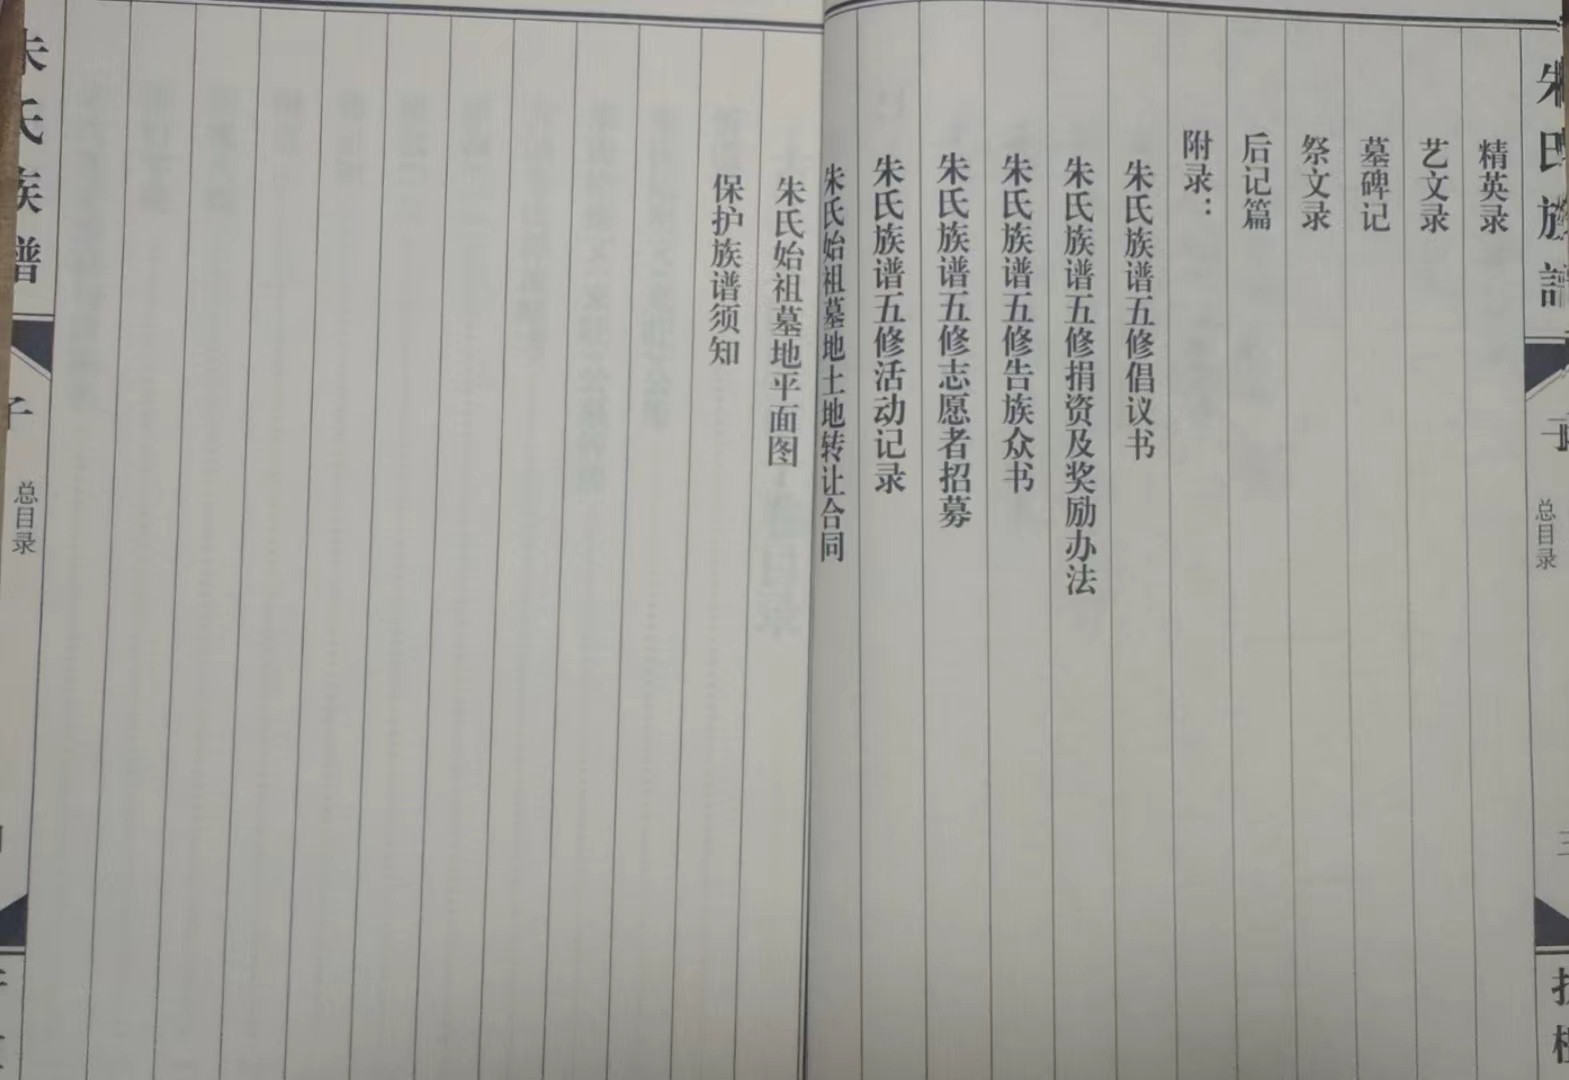 朱氏族谱
子
总目录
三
精英录
艺文录
墓碑记
祭文录
后记篇
附录：
朱氏族谱五修倡议书
朱氏族谱五修捐资及奖励办法
朱氏族谱五修告族众书
朱氏族谱五修志愿者招募
朱氏族谱五修活动记录
朱氏始祖墓地土地转让合同
朱氏始祖墓地平面图
保护族谱须知
朱氏族谱
子
总目录